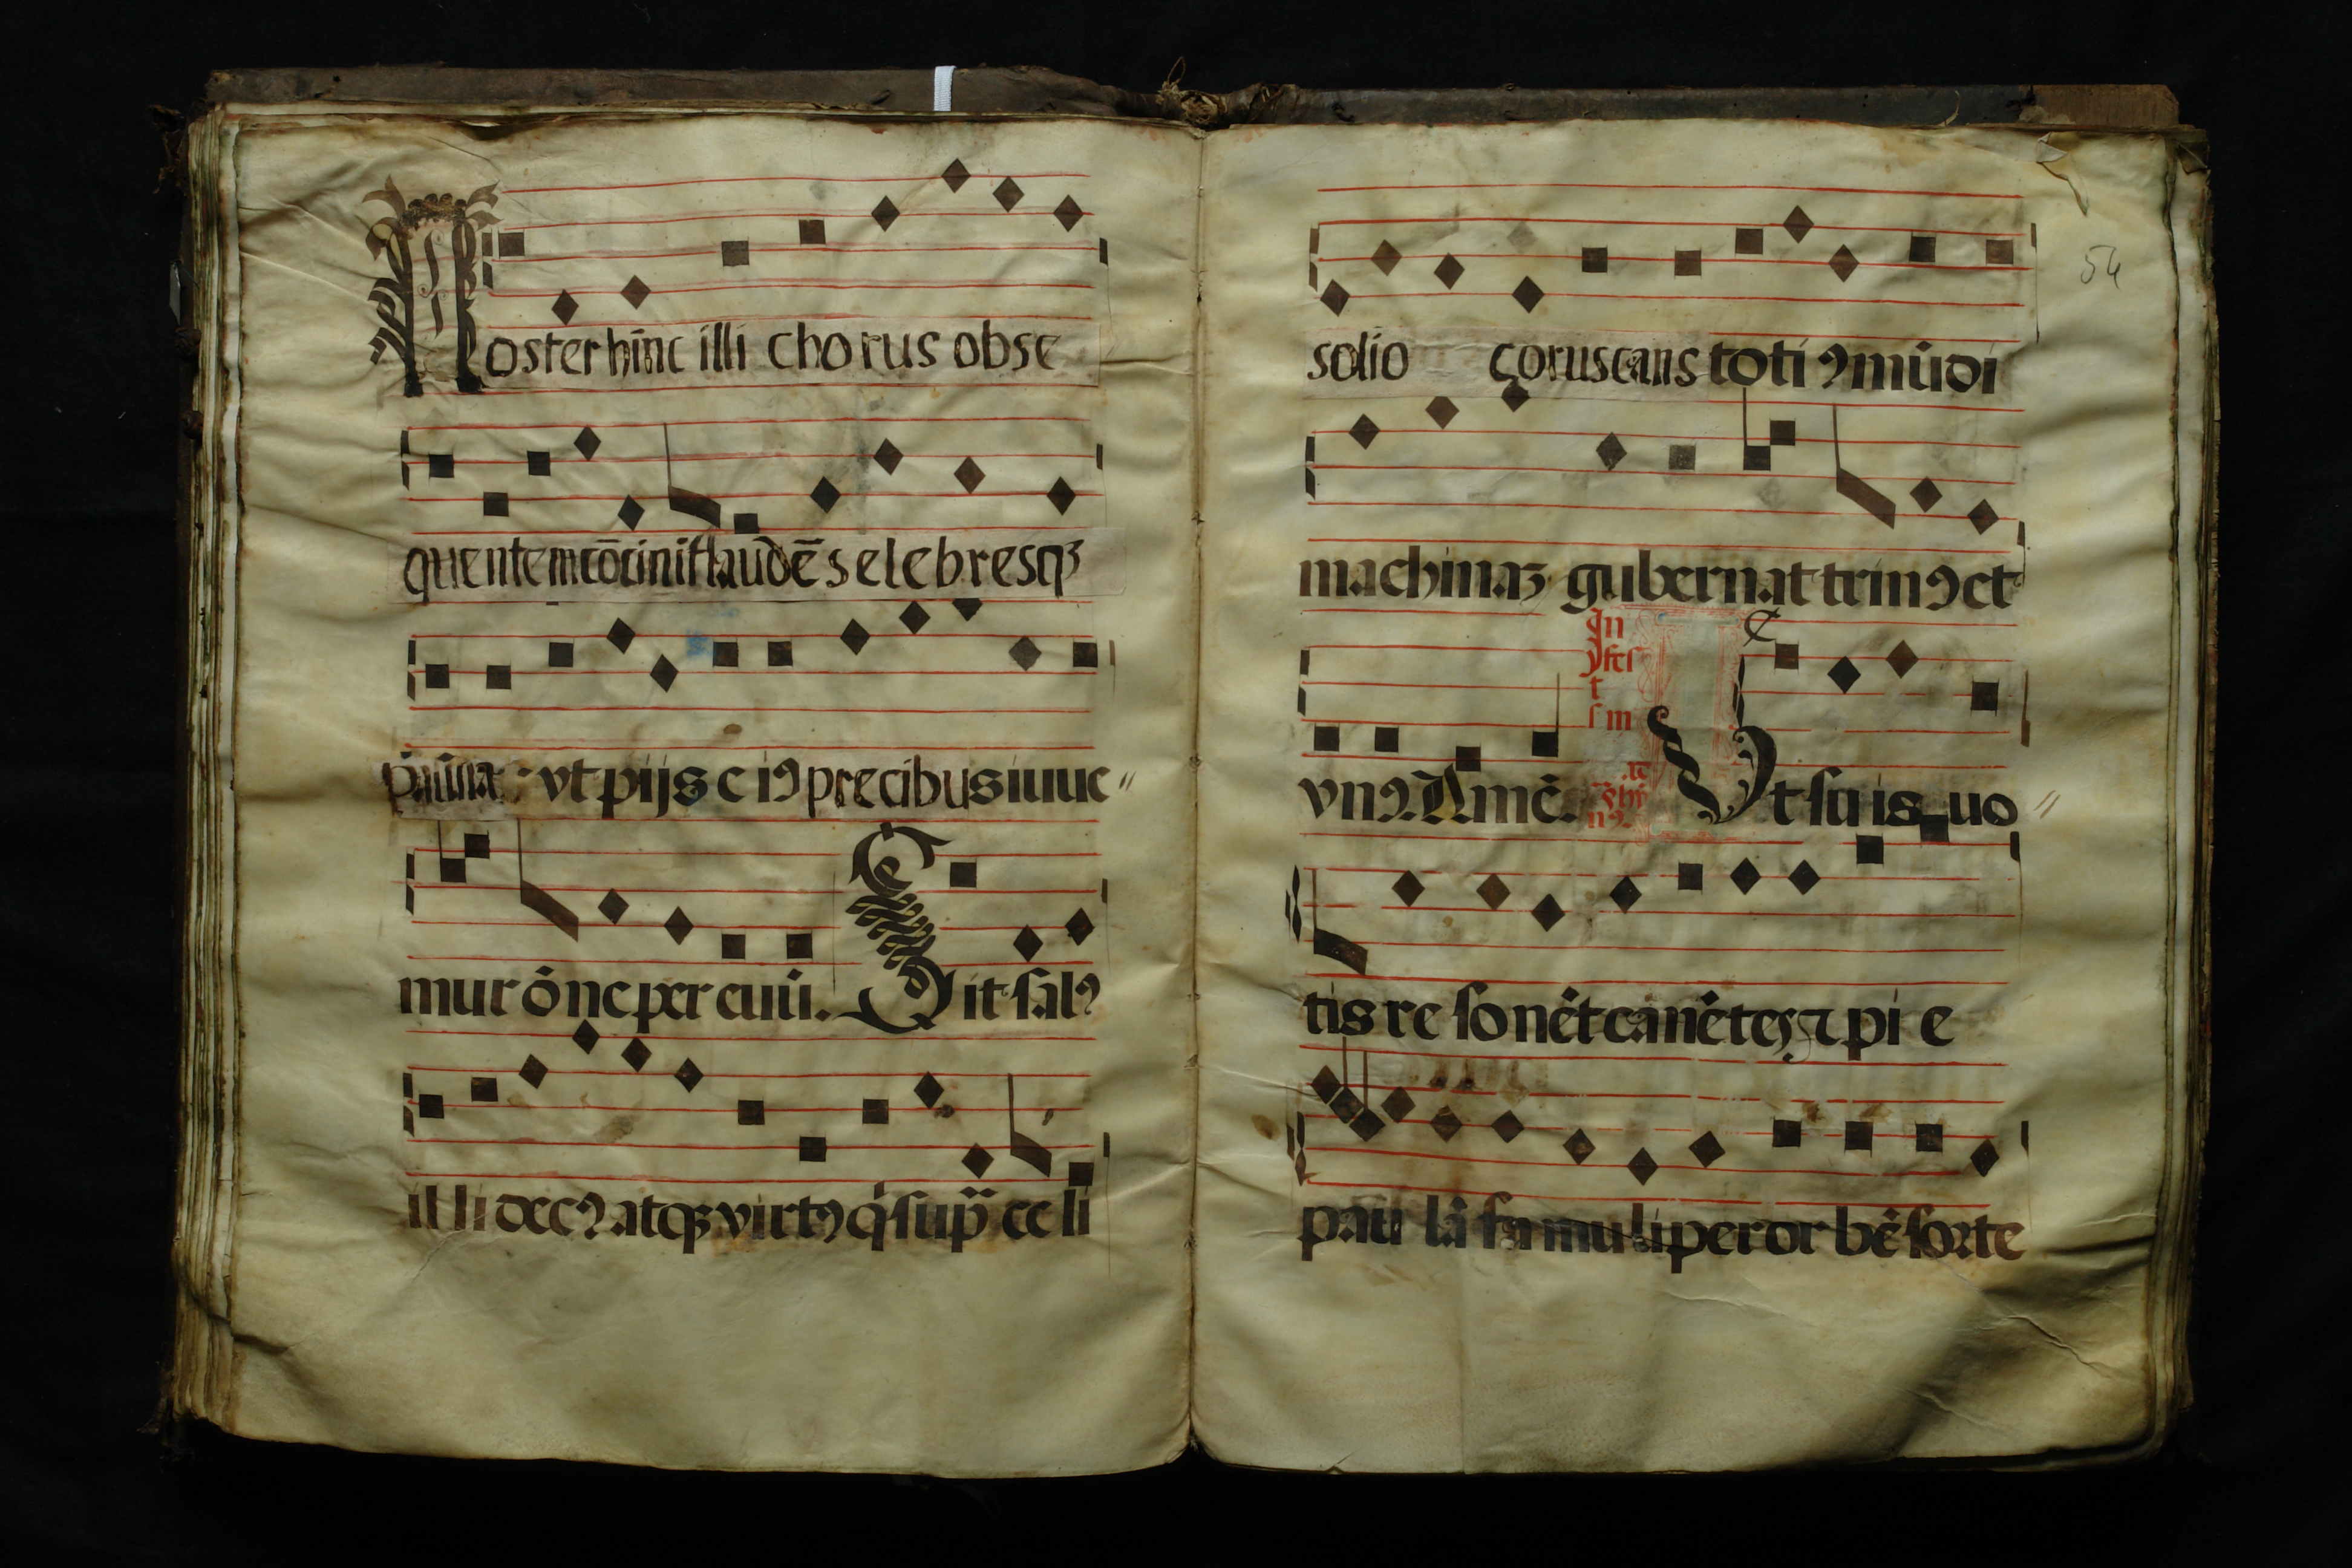 Noster hinc illi chorus obse
quentem cōcinit laudē selebresqꝫ
vt pijs eiꝰ precibus iuue〃
mur ōne per euū. Sit salꝰ
illi decꝰ atqꝫ virtꝰ q̇ sup̄ celi
54
solio coruscans totiꝰ mūdi
machinaꝫ gubernat trinꝰ et
vnꝰ. Amē. Vt suis uo〃
In
tis resonēt canētes ⁊ pie
paulā famuli per orbē forte